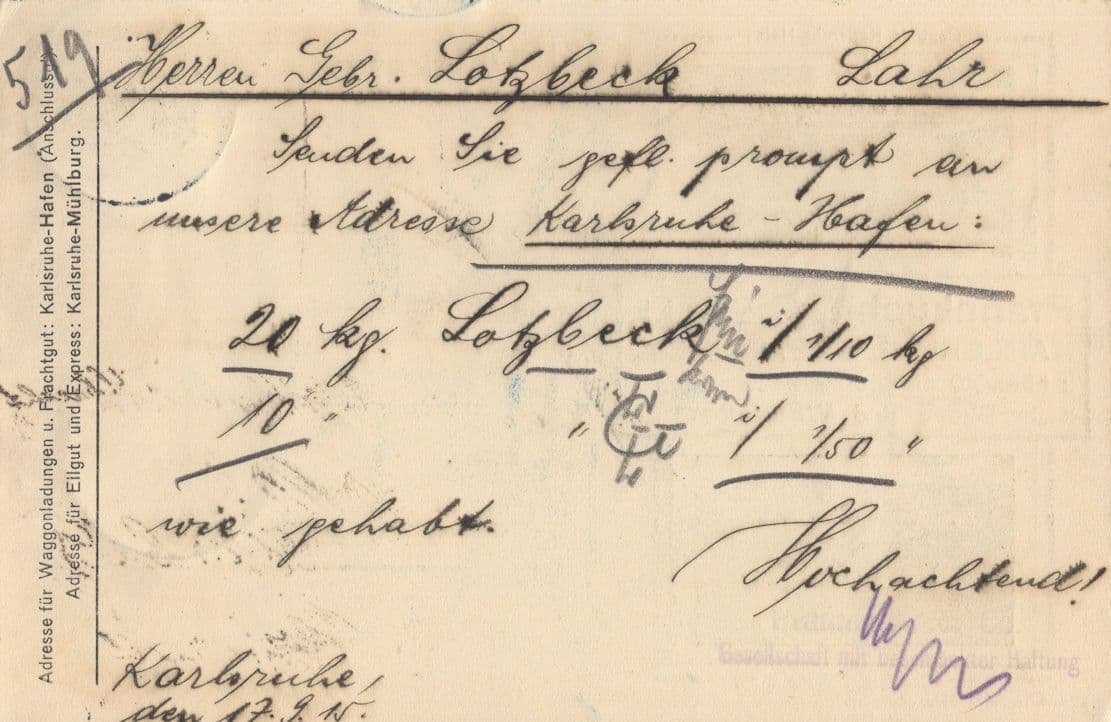 519
Herren Gebr. Lotzbeck Lahr
Senden Sie gefl. prompt an
unsere Adresse Karlsruhe - Hafen:
20 kg. Lotzbeck i/ 1/10 kg
10 " " i/ 1/50 "
wie gehabt.
Hochachtend!
Gesellschaft mit beschränkter Haftung
Karlsruhe,
den 17.9.15.
Adresse für Waggonladungen u. Frachtgut: Karlsruhe-Hafen (Anschluss)
Adresse für Eilgut und Express: Karlsruhe-Mühlburg.